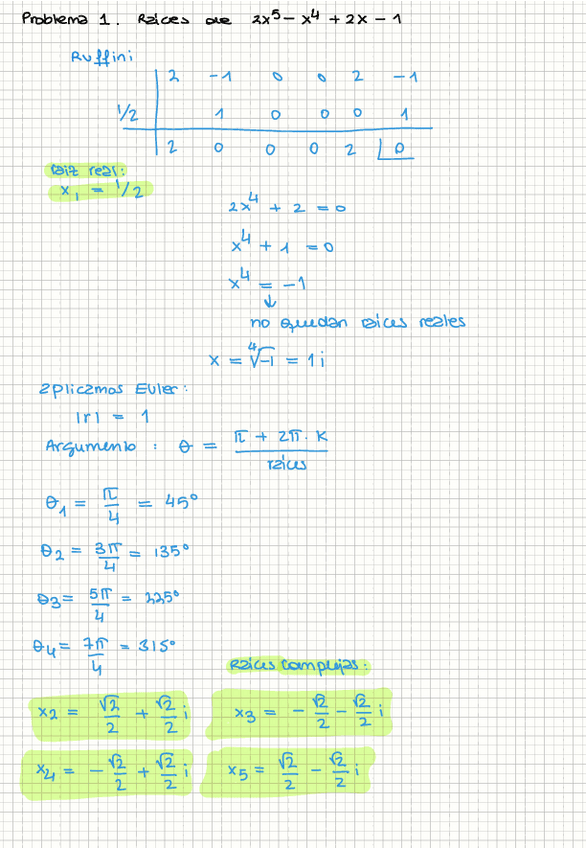 Problema 1. Raíces de 2x⁵ - x⁴ + 2x - 1
Ruffini
2 -1 0 0 2 -1
1/2 1 0 0 0 1
2 0 0 0 2 0
raíz real:
x₁ = 1/2
2x⁴ + 2 = 0
x⁴ + 1 = 0
x⁴ = -1
↓
no quedan raíces reales
x = ⁴√-1 = 1i
aplicamos Euler:
|r| = 1
Argumento : θ = (π + 2π · K) / raíces
θ₁ = π/4 = 45°
θ₂ = 3π/4 = 135°
θ₃ = 5π/4 = 225°
θ₄ = 7π/4 = 315°
Raíces complejas:
x₂ = √2/2 + √2/2 i x₃ = - √2/2 - √2/2 i
x₄ = - √2/2 + √2/2 i x₅ = √2/2 - √2/2 i